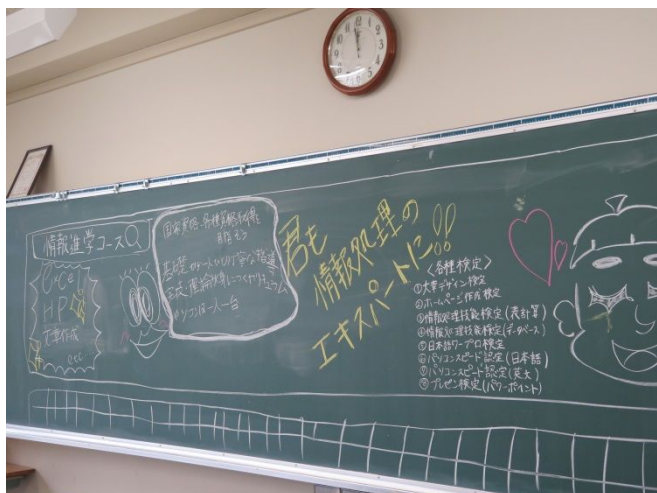 情報進学コース
Excel
HP
工事作成
etc
国家資格・各種資格取得を
目指そう
基礎から一人ひとり丁寧な指導
パソコン一人一台
君も
情報処理の
エキスパートに!!
<各種検定>
①文書デザイン検定
②ホームページ作成検定
③情報処理技能検定(表計算)
④情報処理技能検定(データベース)
⑤日本語ワープロ検定
⑥パソコンスピード認定(日本語)
⑦パソコンスピード認定(英文)
⑧プレゼン検定(パワーポイント)